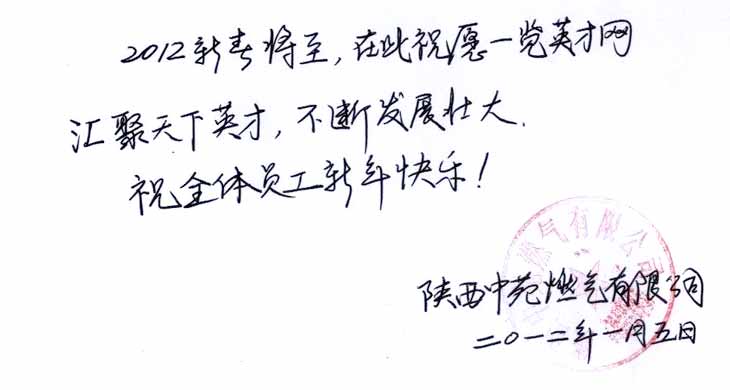 2012新春将至,在此祝愿一览英才网
汇聚天下英才,不断发展壮大.
祝全体员工新年快乐!
燃气有限公司
陕西中苑燃气有限公司
二〇一二年一月五日